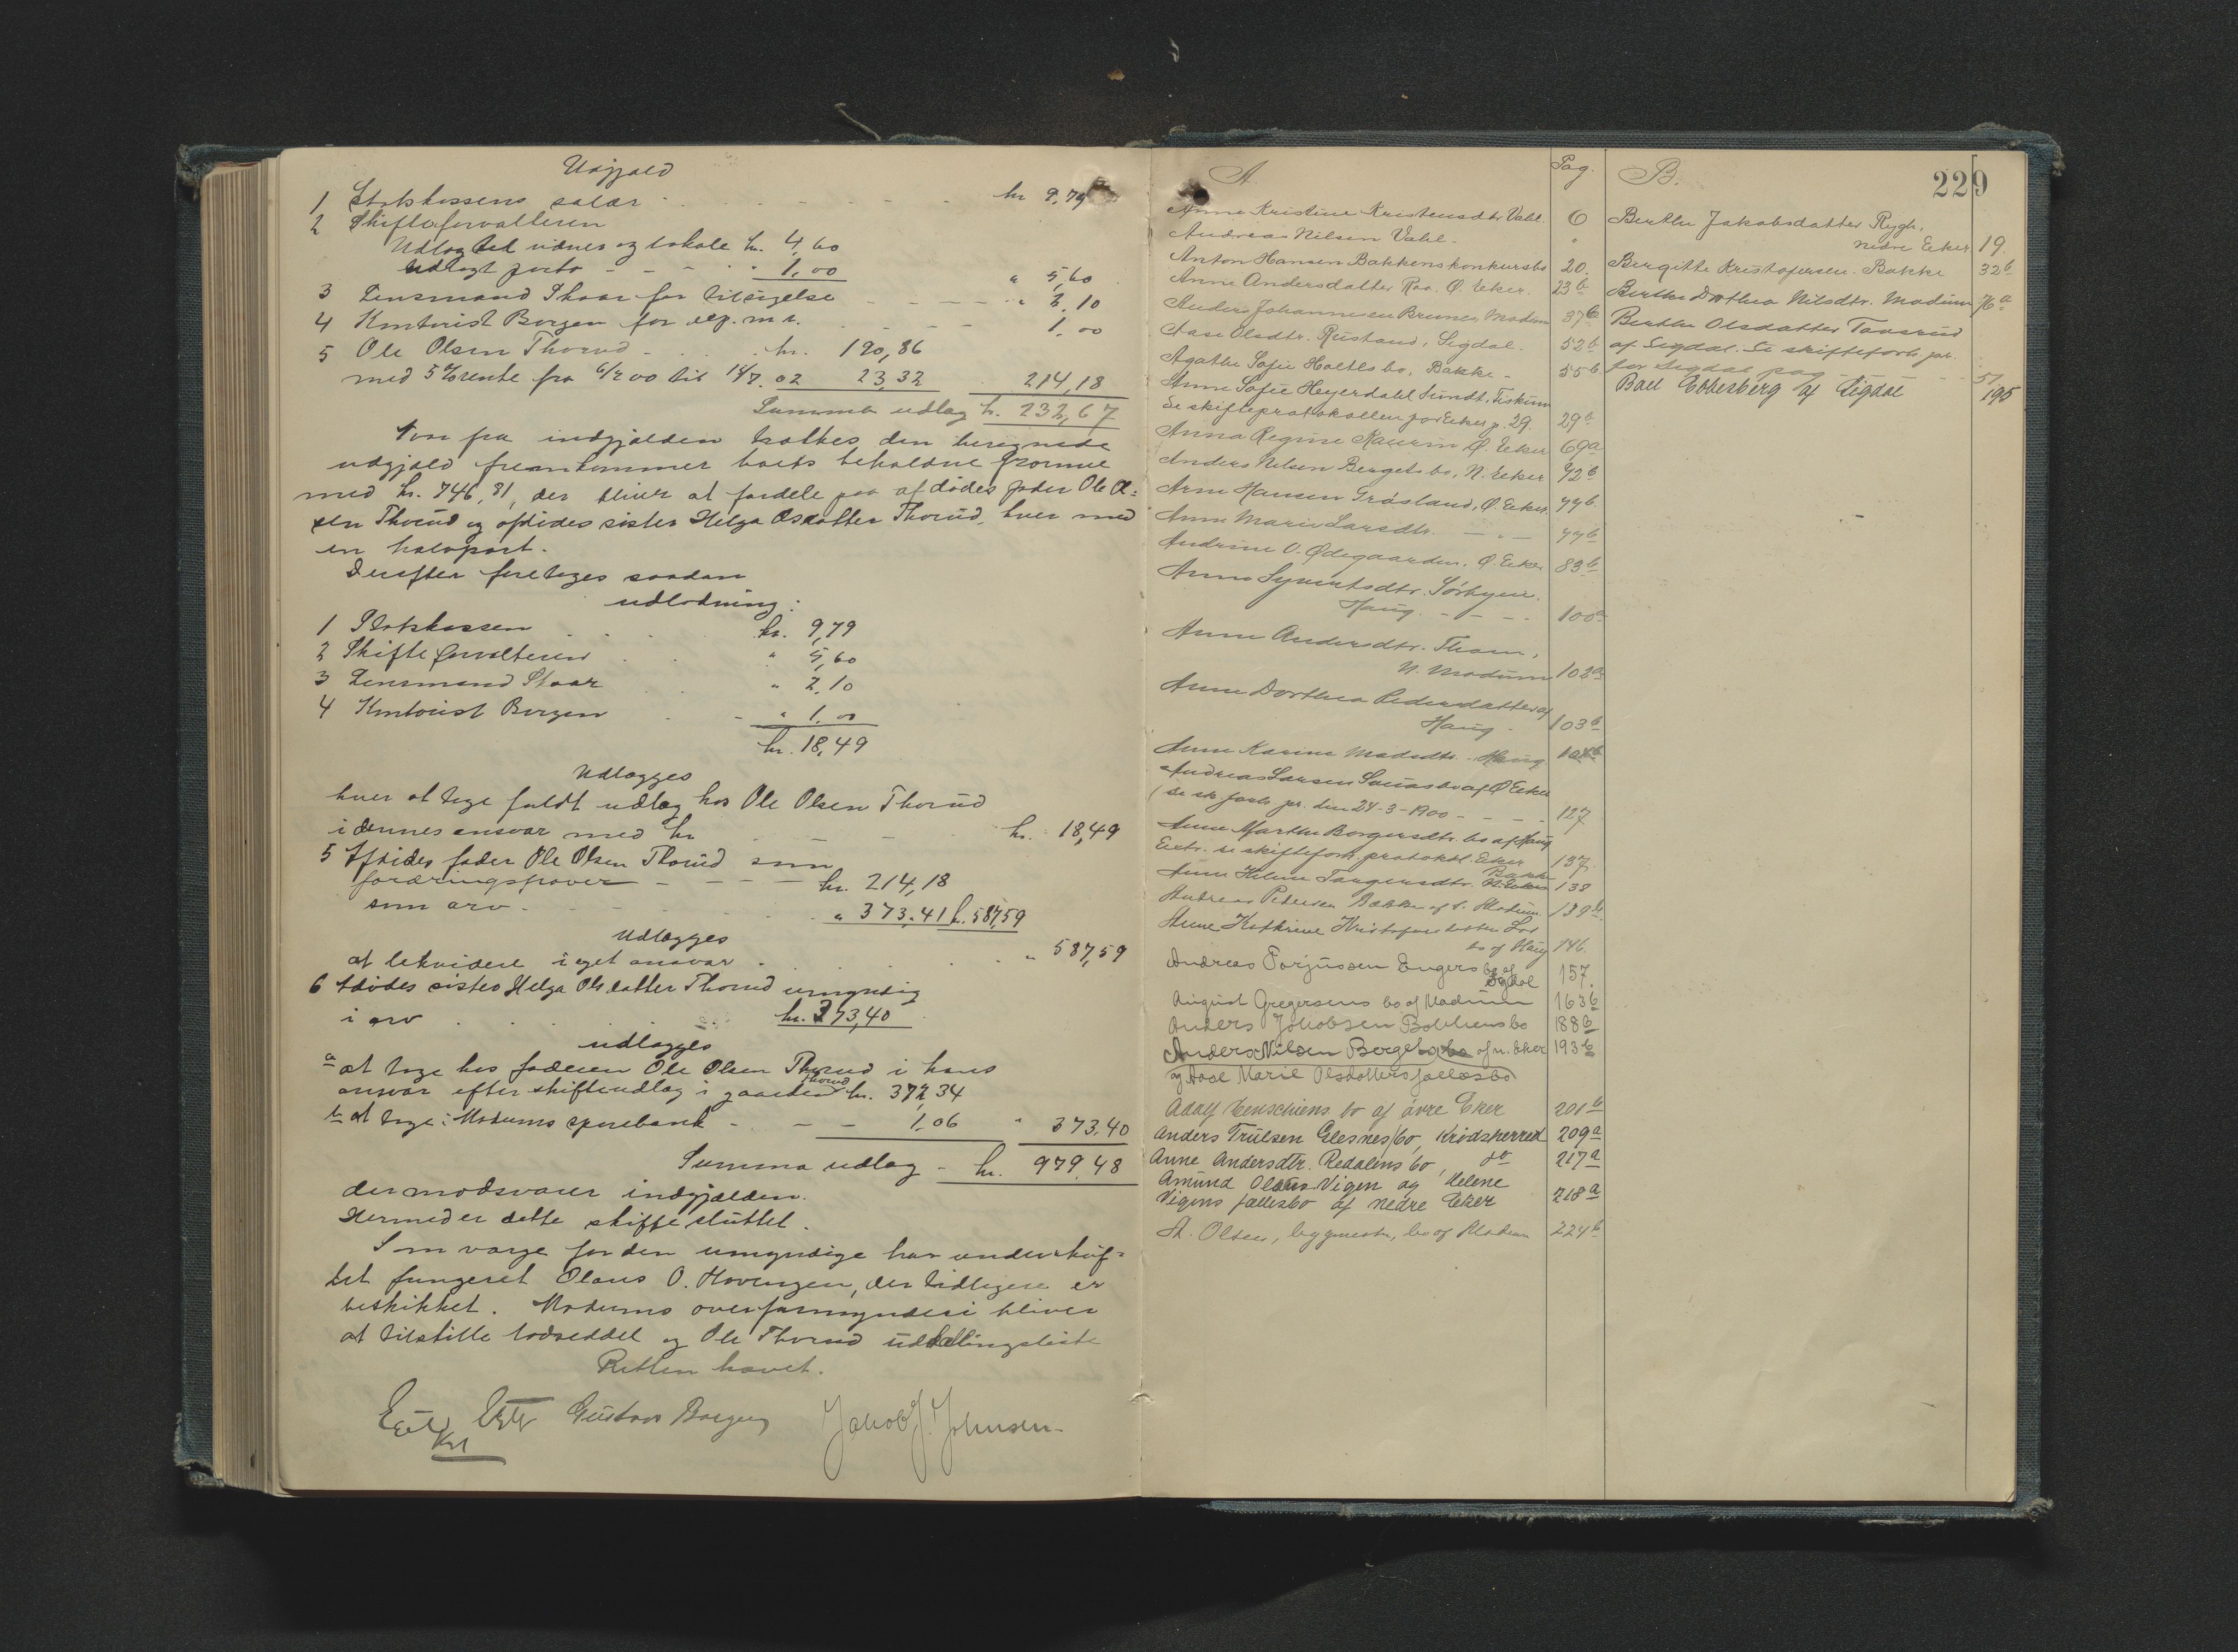 Udgjæld
1 Statskassens salær . . . . kr 9,79
2 Skifteforvalteren
Udlagt til vidner og lokale kr. 4,60
udlagt porto - - - " 1,00 " 5,60
3 Lensmand Skaar for tilsigelse - - - " 2.10
4 Kontorist Borgen for exp. m. v. - - 1.00
5 Ole Olsen Thorud - . . kr. 190,86
med 5% rente fra 6/2 00 til 14/7. 02 23,32 214,18
Summa udlæg kr. 232,67
Naar fra indgjælden trækkes den beregnede
udgjæld fremkommer boets beholdne formue
med kr. 746,81, der bliver at fordele paa afdødes fader Ole Ol=
sen Thorud og afdødes søster Helga Olsdatter Thorud, hver med
en halvpart.
Derefter foretoges saadan
udlodning:
1 Statskassen . . . kr. 9,79
2 Skifteforvalteren . . " 5,60
3 Lensmand Skaar " 2,10
4 Kontorist Borgen . - " 1,00
kr. 18,49
Udlægges
hver at tage fuldt udlæg hos Ole Olsen Thorud
i dennes ansvar med kr - - - kr. 18,49
5 Afdødes fader Ole Olsen Thorud som
fordringshaver - - - kr. 214,18
som arv - - - " 373.41 kr. 587,59
Udlægges
at likvidere i eget ansvar . . . " 587,59
6 Afdødes søster Helga Olsdatter Thorud umyndig
i arv . . . kr. 373,40
udlægges
a at tage hos faderen Ole Olsen Thorud i hans
ansvar efter skifteudlæg i gaarden Thorud kr. 372,34
b at tage i Modums sparebank - - - 1,06 " 373,40
Summa udlæg - kr. 979,48
der modsvarer indgjælden.
Hermed er dette skifte sluttet.
Som værge for den umyndige har under skif=
tet fungeret Olaus O. Hovengen, der tidligere er
beskikket. Modums overformynderi bliver
at tilstille lodseddel og Ole Thorud uddelingsliste
Retten hævet.
Gustav Borgen Jakob J. Johnsen
A. Pag.
Anne Kristine Kristensdtr. Vahl. 6
Andreas Nilsen Vahl. "
Anton Hansen Bakkens konkursbo 20.
Anne Andersdatter Raa. Ø. Eker. 23b
Anders Johannesen Brunes, Modum 37b
Aase Olsdtr. Rustand, Sigdal. 52b
Agathe Sofie Holtes bo, Bakke - 55b
Anne Sofie Heyerdahl Sundt, Fiskum
Se skifteprotokollen for Eker p. 29. 29b
Anna Regine Kaurin Ø. Eker 69a
Anders Nilsen Bergets bo, N. Eker 72b
Arne Hansen Grøsland, Ø. Eker. 77b
Anne Marie Larsdtr. - " - 77b
Andrine O. Ødegaarden, Ø. Eker 83b
Anne Syvertsdtr. Sørbyeie.
Haug. - - - 100a
Anne Andersdtr. Thom,
N. Modum 102a
Anne Dorthea Pedersdatter af
Haug. 103b
Anne Karine Madsdtr. Haug 104b
Andreas Larsen bo af Ø Eker
(Se sk. forh. pr. den 24-3-1900 - - - 127
Anne Marthe Borgersdtr. bo af Haug
Extr. se skifteforh. protokol. Eker 137.
Anne Helene Torgersdtr. Bakke N. Eker 138
Andreas Pedersen Bakke af N. Modum. 139b
Anne Kathrine Kristofersdatter
bo af Haug 146.
Andreas Torjussen Engers bo af
Sigdal 157.
August Gregersens bo af Modum 163b
Anders Jakobsen Bakkens bo 188b
Anders Nilsen Bergets bo af n. Eker 193b
og Aase Marie Olsdatters fællesbo
Adolf bo af øvre Eker 201b
Anders Trulsen Glesnes bo, Krødsherred 209a
Anne Andersdtr. Redalens bo, do 217a
Amund Olaus Vigen og Helene
Vigens fællesbo af nedre Eker 218a
A. Olsen, bygmester, bo af Modum 224b
B. 229
Berthe Jakobsdatter Rygh,
nedre Eker 19.
Bergitte Kristofersen. Bakke 32b
Berthe Dorthea Nilsdtr. Modum 76a
Berthe Olsdatter Tovsrud
af Sigdal. Se skifteforh. pr.
for Sigdal pag - - - 51
Boel Ebbesberg af Sigdal 195